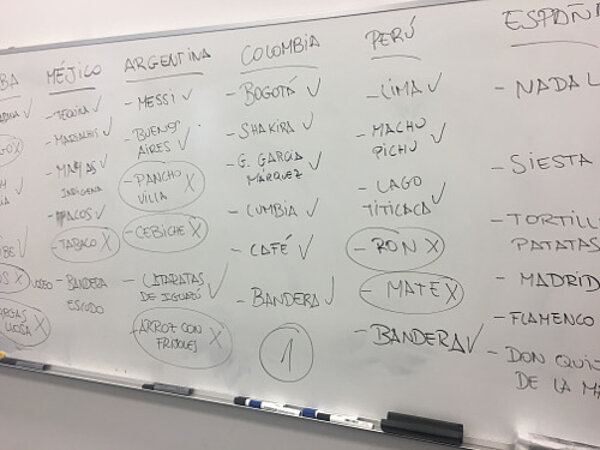 MÉJICO
- TEQUILA ✓
- MARIACHIS ✓
- MAYAS ✓
INDÍGENA
- TACOS ✓
- TABACO X
- BANDERA
ESCUDO
ARGENTINA
- MESSI ✓
- BUENOS
AIRES ✓
- PANCHO X
VILLA
- CEBICHE X
- CATARATAS
DE IGUAZÚ ✓
- ARROZ CON
FRIJOLES X
COLOMBIA
- BOGOTÁ ✓
- SHAKIRA ✓
- G. GARCÍA
MÁRQUEZ ✓
- CUMBIA ✓
- CAFÉ ✓
- BANDERA ✓
1
PERÚ
- LIMA ✓
- MACHU
PICHU ✓
- LAGO
TITICACA ✓
- RON X
- MATE X
- BANDERA ✓
ESPAÑA
- NADAL
- SIESTA
- TORTILL
PATATAS
- MADRID
- FLAMENCO
- DON QUIJ
DE LA MA